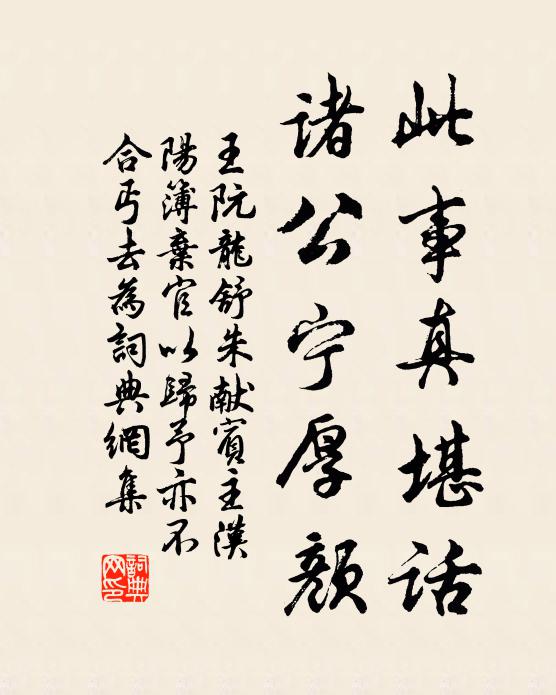 此事真堪话
诸公宁厚颜
王阮龍舒朱献賓主漢
陽簿棄官以歸予亦不
合丐去為詞典網集
詞典网印